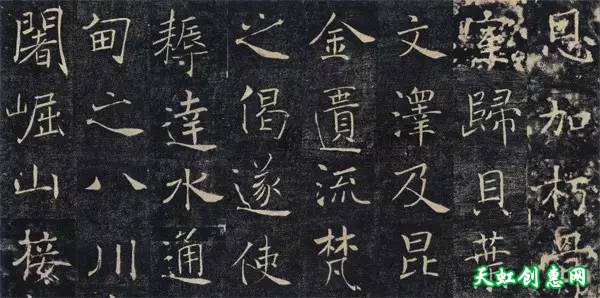 恩加朽骨
歸貝葉
文澤及昆
金匱流梵
之偈遂使
耨達水通
甸之八川
闍崛山接
天虹创惠网